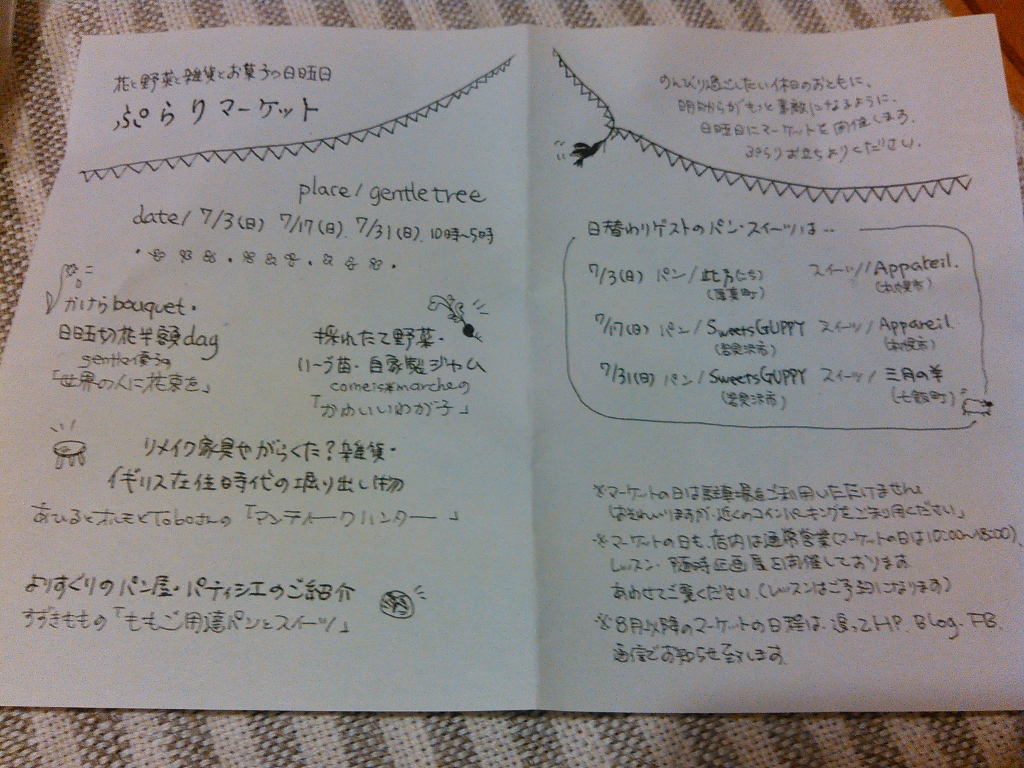 花と野菜と雑貨とお菓子の日曜日
ぷらりマーケット
place/gentle tree
date/ 7/3(日) 7/17(日). 7/31(日). 10時〜5時
かけらbouquet・
日曜切花半額day
gentle優子の
「世界の人に花束を」
採れたて野菜・
ハーブ苗・自家製ジャム
come is*marcheの
「かわいいわが子」
リメイク家具やがらくた?雑貨・
イギリス在住時代の堀り出し物
あひるとオルモとToboさんの「アンティークハンター」
よりすぐりのパン屋・パティシエのご紹介
すずきももの「ももご用達パンとスイーツ」
のんびり過ごしたい休日のおともに、
明日からがもっと素敵になるように、
日曜日にマーケットを開催します。
ぷらりお立ちよりください。
日替わりゲストのパン・スイーツは…
7/3(日) パン/此方(こち) スイーツ//Appareil.
7/17(日) パン/SweetsGUPPY スイーツ/Appareil.
(岩見沢市) (札幌市)
7/31(日) パン/SweetsGUPPY スイーツ/三月の羊
(岩見沢市) (七飯町)
※マーケットの日は駐車場をご利用いただけません
(おそれいりますが、近くのコインパーキングをご利用ください)
※マーケットの日も、店内は通常営業(マーケットの日は10:00〜18:00)、
レッスン・随時企画展を開催しております
あわせてご覧ください。(レッスンはご予約になります)
※8月以降のマーケットの日程は、追ってHP. Blog. FB.
通信でお知らせ致します。